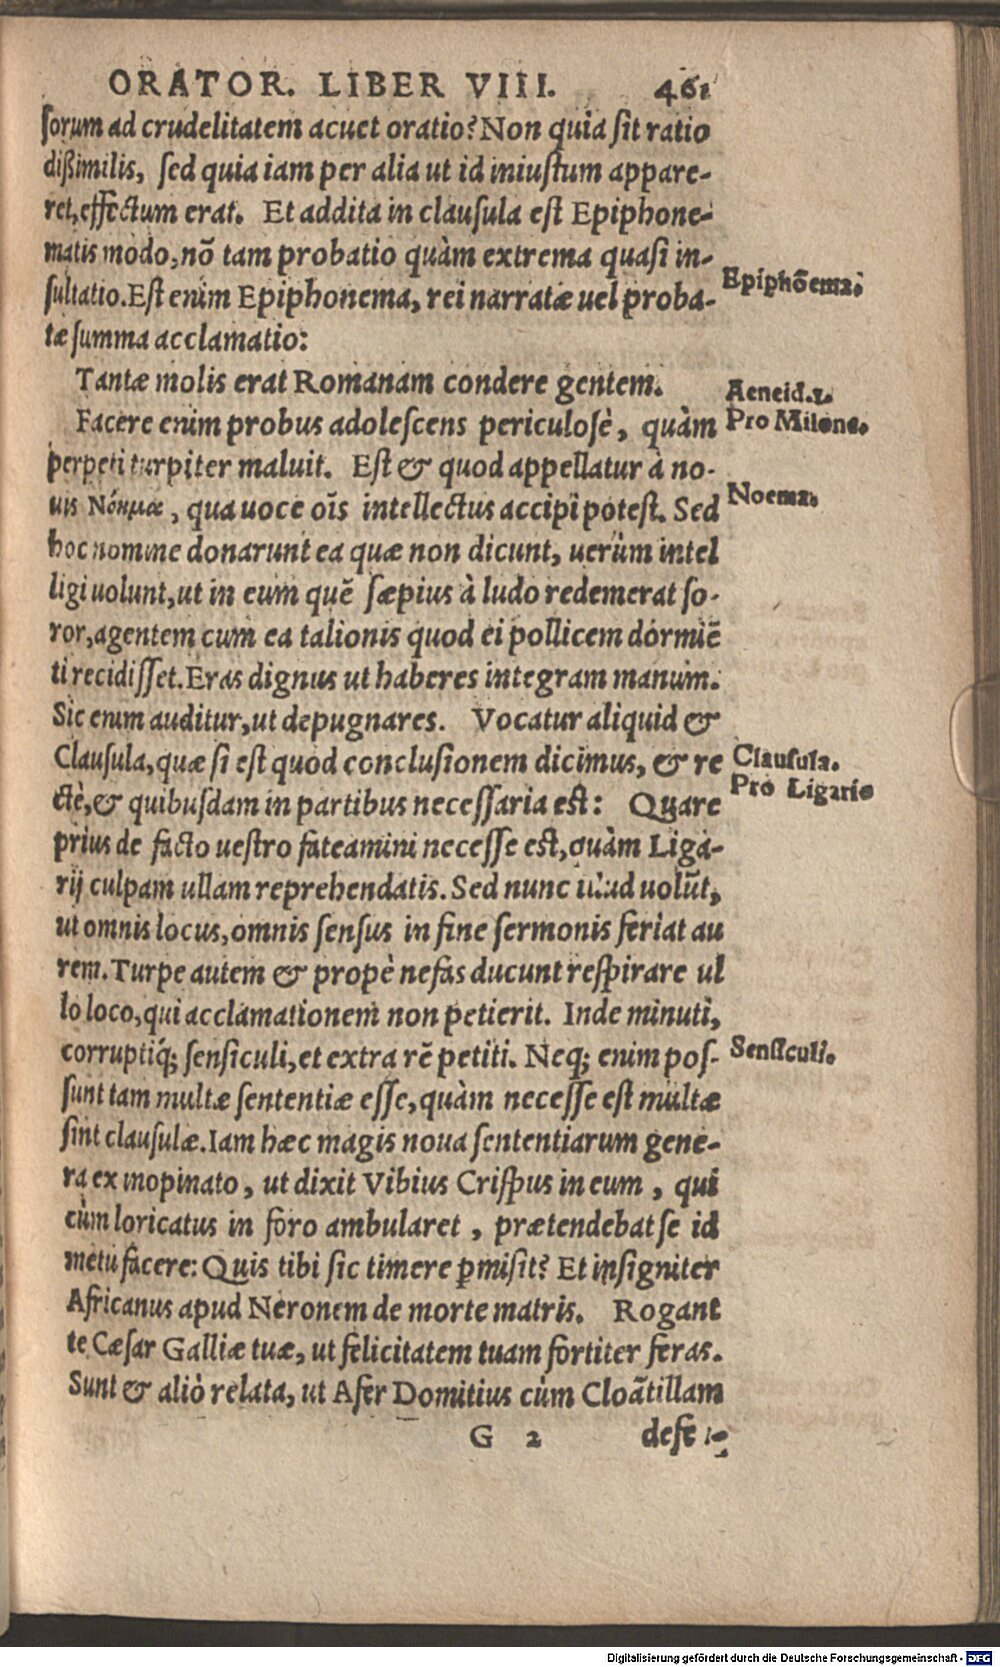 ORATOR. LIBER VIII. 461
ſorum ad crudelitatem acuet oratio? Non quia ſit ratio
dißimilis, ſed quia iam per alia ut id iniuſtum appare-
ret, effectum erat. Et addita in clauſula eſt Epiphone-
matis modo, nō tam probatio quàm extrema quaſi in-
ſultatio. Eſt enim Epiphonema, rei narratæ uel proba-
tæ ſumma acclamatio:
Epiphōema.
Tantæ molis erat Romanam condere gentem.
Aeneid.1.
Facere enim probus adoleſcens periculoſè, quàm
Pro Milone.
perpeti turpiter maluit. Eſt & quod appellatur à no-
uis Νόημα, qua uoce oīs intellectus accipi poteſt. Sed
Noema.
hoc nomine donarunt ea quæ non dicunt, uerùm intel
ligi uolunt, ut in eum quē ſæpius à ludo redemerat ſo-
ror, agentem cum ea talionis quod ei pollicem dormiē
ti recidiſſet. Eras dignus ut haberes integram manum.
Sic enim auditur, ut depugnares. Vocatur aliquid &
Clauſula, quæ ſi eſt quod concluſionem dicimus, & re
Clauſula.
ctè, & quibuſdam in partibus neceſſaria eſt: Quare
Pro Ligario
prius de facto ueſtro fateamini neceſſe eſt, quàm Ligа-
rij culpam ullam reprehendatis. Sed nunc illud uolūt,
ut omnis locus, omnis ſenſus in fine ſermonis feriat au
rem. Turpe autem & propè nefas ducunt reſpirare ul
lo loco, qui acclamationem non petierit. Inde minuti,
corruptiq́; ſenſiculi, et extra rē petiti. Neq; enim poſ-
Senſiculi.
ſunt tam multæ ſententiæ eſſe, quàm neceſſe eſt multæ
ſint clauſulæ. Iam hæc magis noua ſententiarum gene-
ra ex inopinato, ut dixit Vibius Criſpus in eum, qui
cùm loricatus in foro ambularet, prætendebat ſe id
metu facere: Quis tibi ſic timere p̱miſit? Et inſigniter
Africanus apud Neronem de morte matris. Rogant
te Cæſar Galliæ tuæ, ut felicitatem tuam fortiter feras.
Sunt & aliò relata, ut Afer Domitius cùm Cloātillam
G 2 defe-
Digitalisierung gefördert durch die Deutsche Forschungsgemeinschaft - DFG